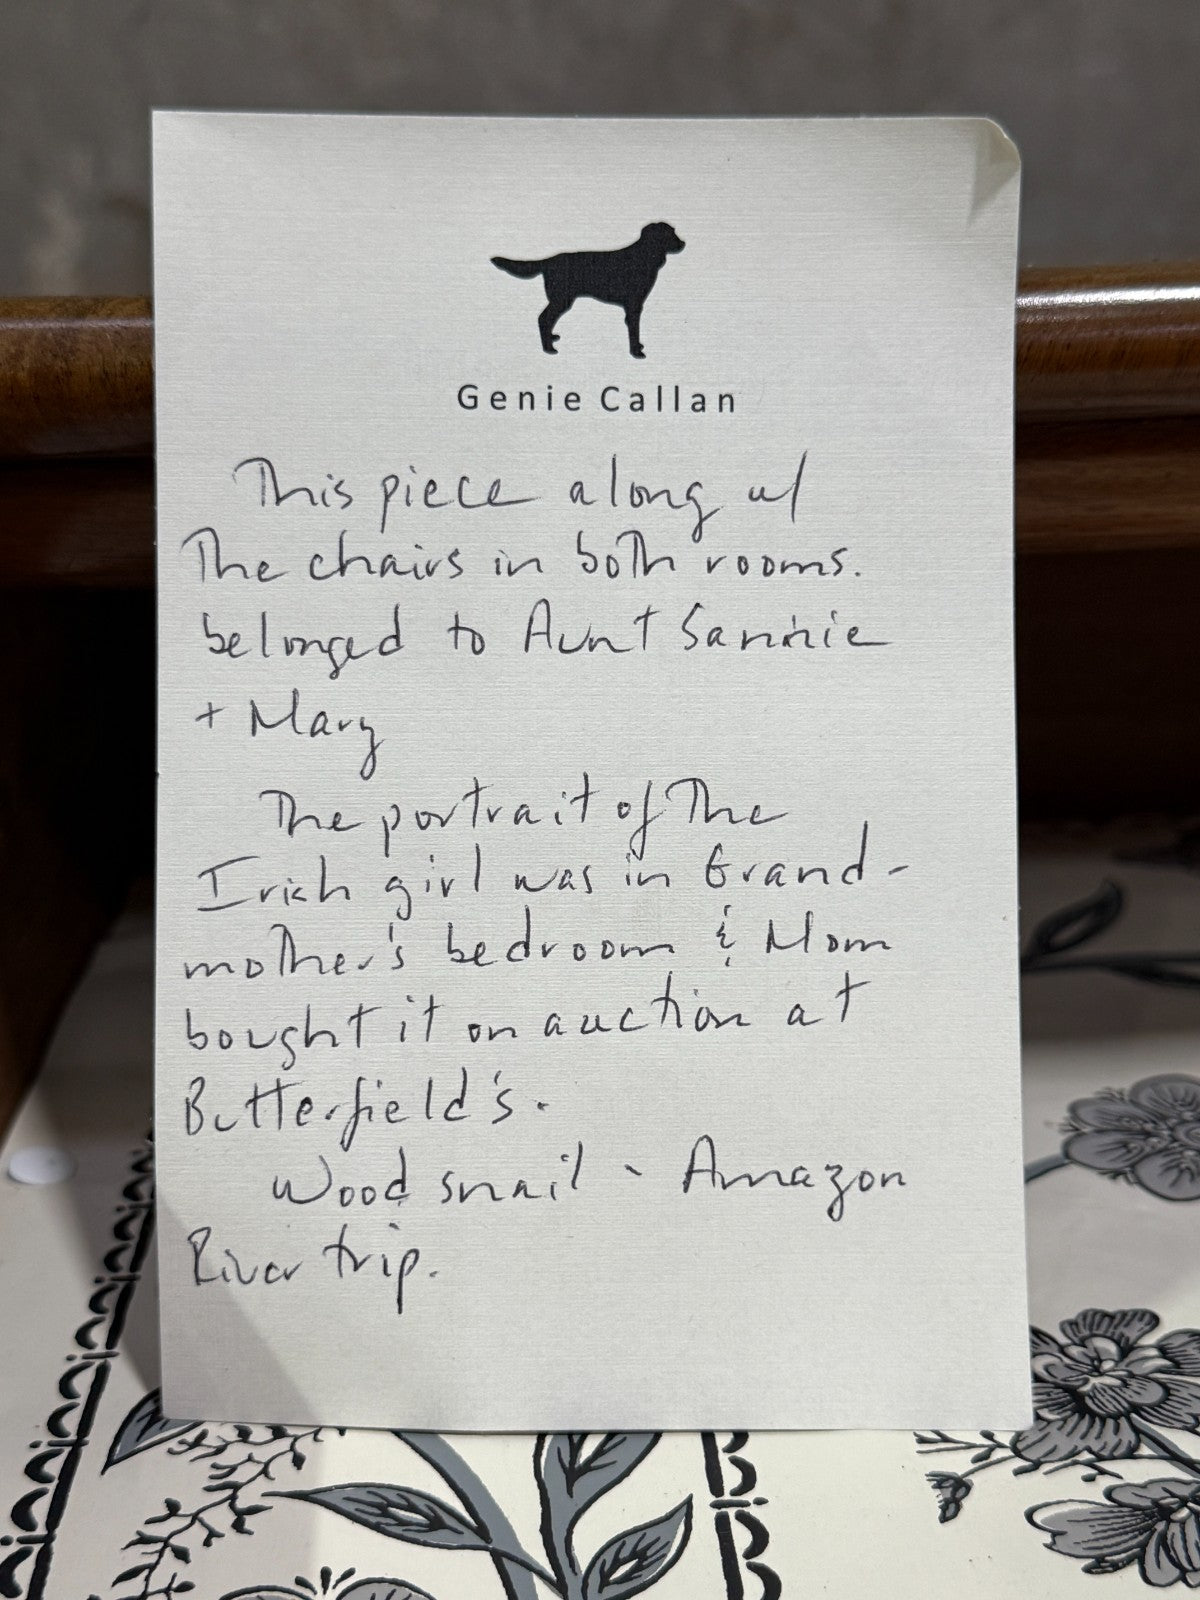 Genie Callan
This piece along w/
The chairs in both rooms.
belonged to Aunt Sannie
+ Mary
The portrait of The
Irish girl was in Grand-
mother's bedroom & Mom
bought it on auction at
Butterfield's.
Wood snail - Amazon
River trip.